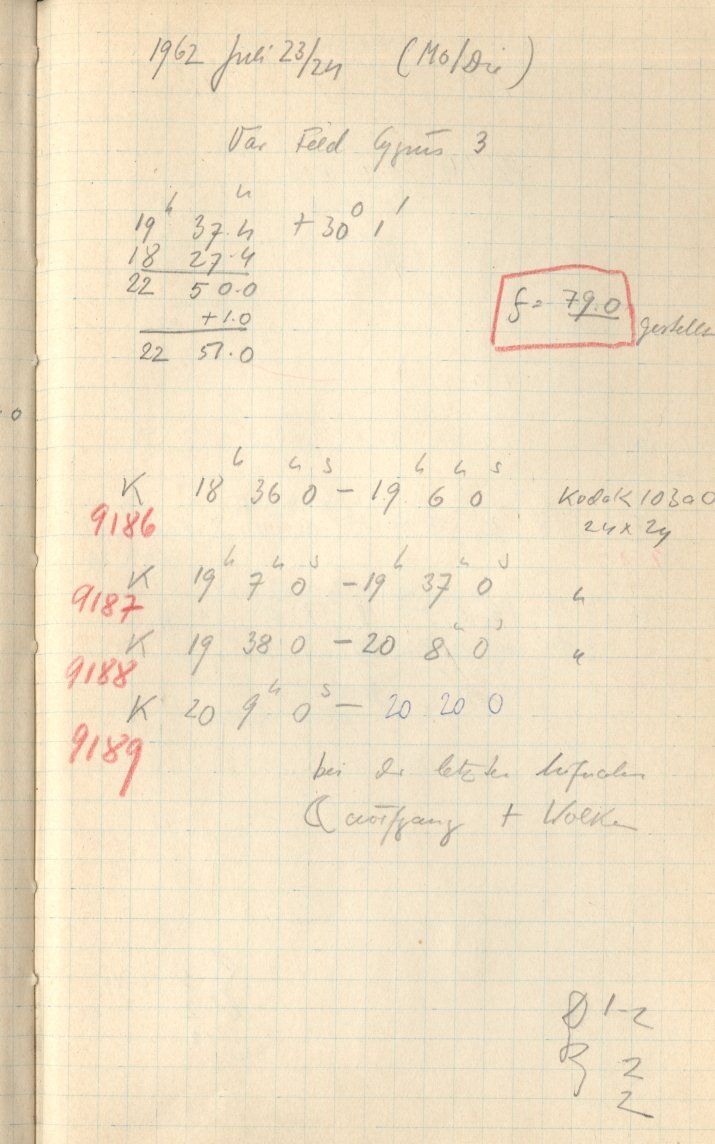 1962 Juli 23/24 (Mo/Die)
Var Feld Cygnus 3
19 h 37.4 m +30° 1'
18 27.4
22 50.0
+1.0
22 51.0
f = 79.0 gestellt
K 18 h 36 m 0 s – 19 h 6 m 0 s Kodak 103aO
9186 24 x 24
K 19 h 7 m 0 s – 19 h 37 m 0 s "
9187
K 19 38 0 – 20 8 m 0 s "
9188
K 20 9 m 0 s – 20 20 0
9189
bei der letzten Aufnahme
☾ aufgang + Wolken
1-2
2
2